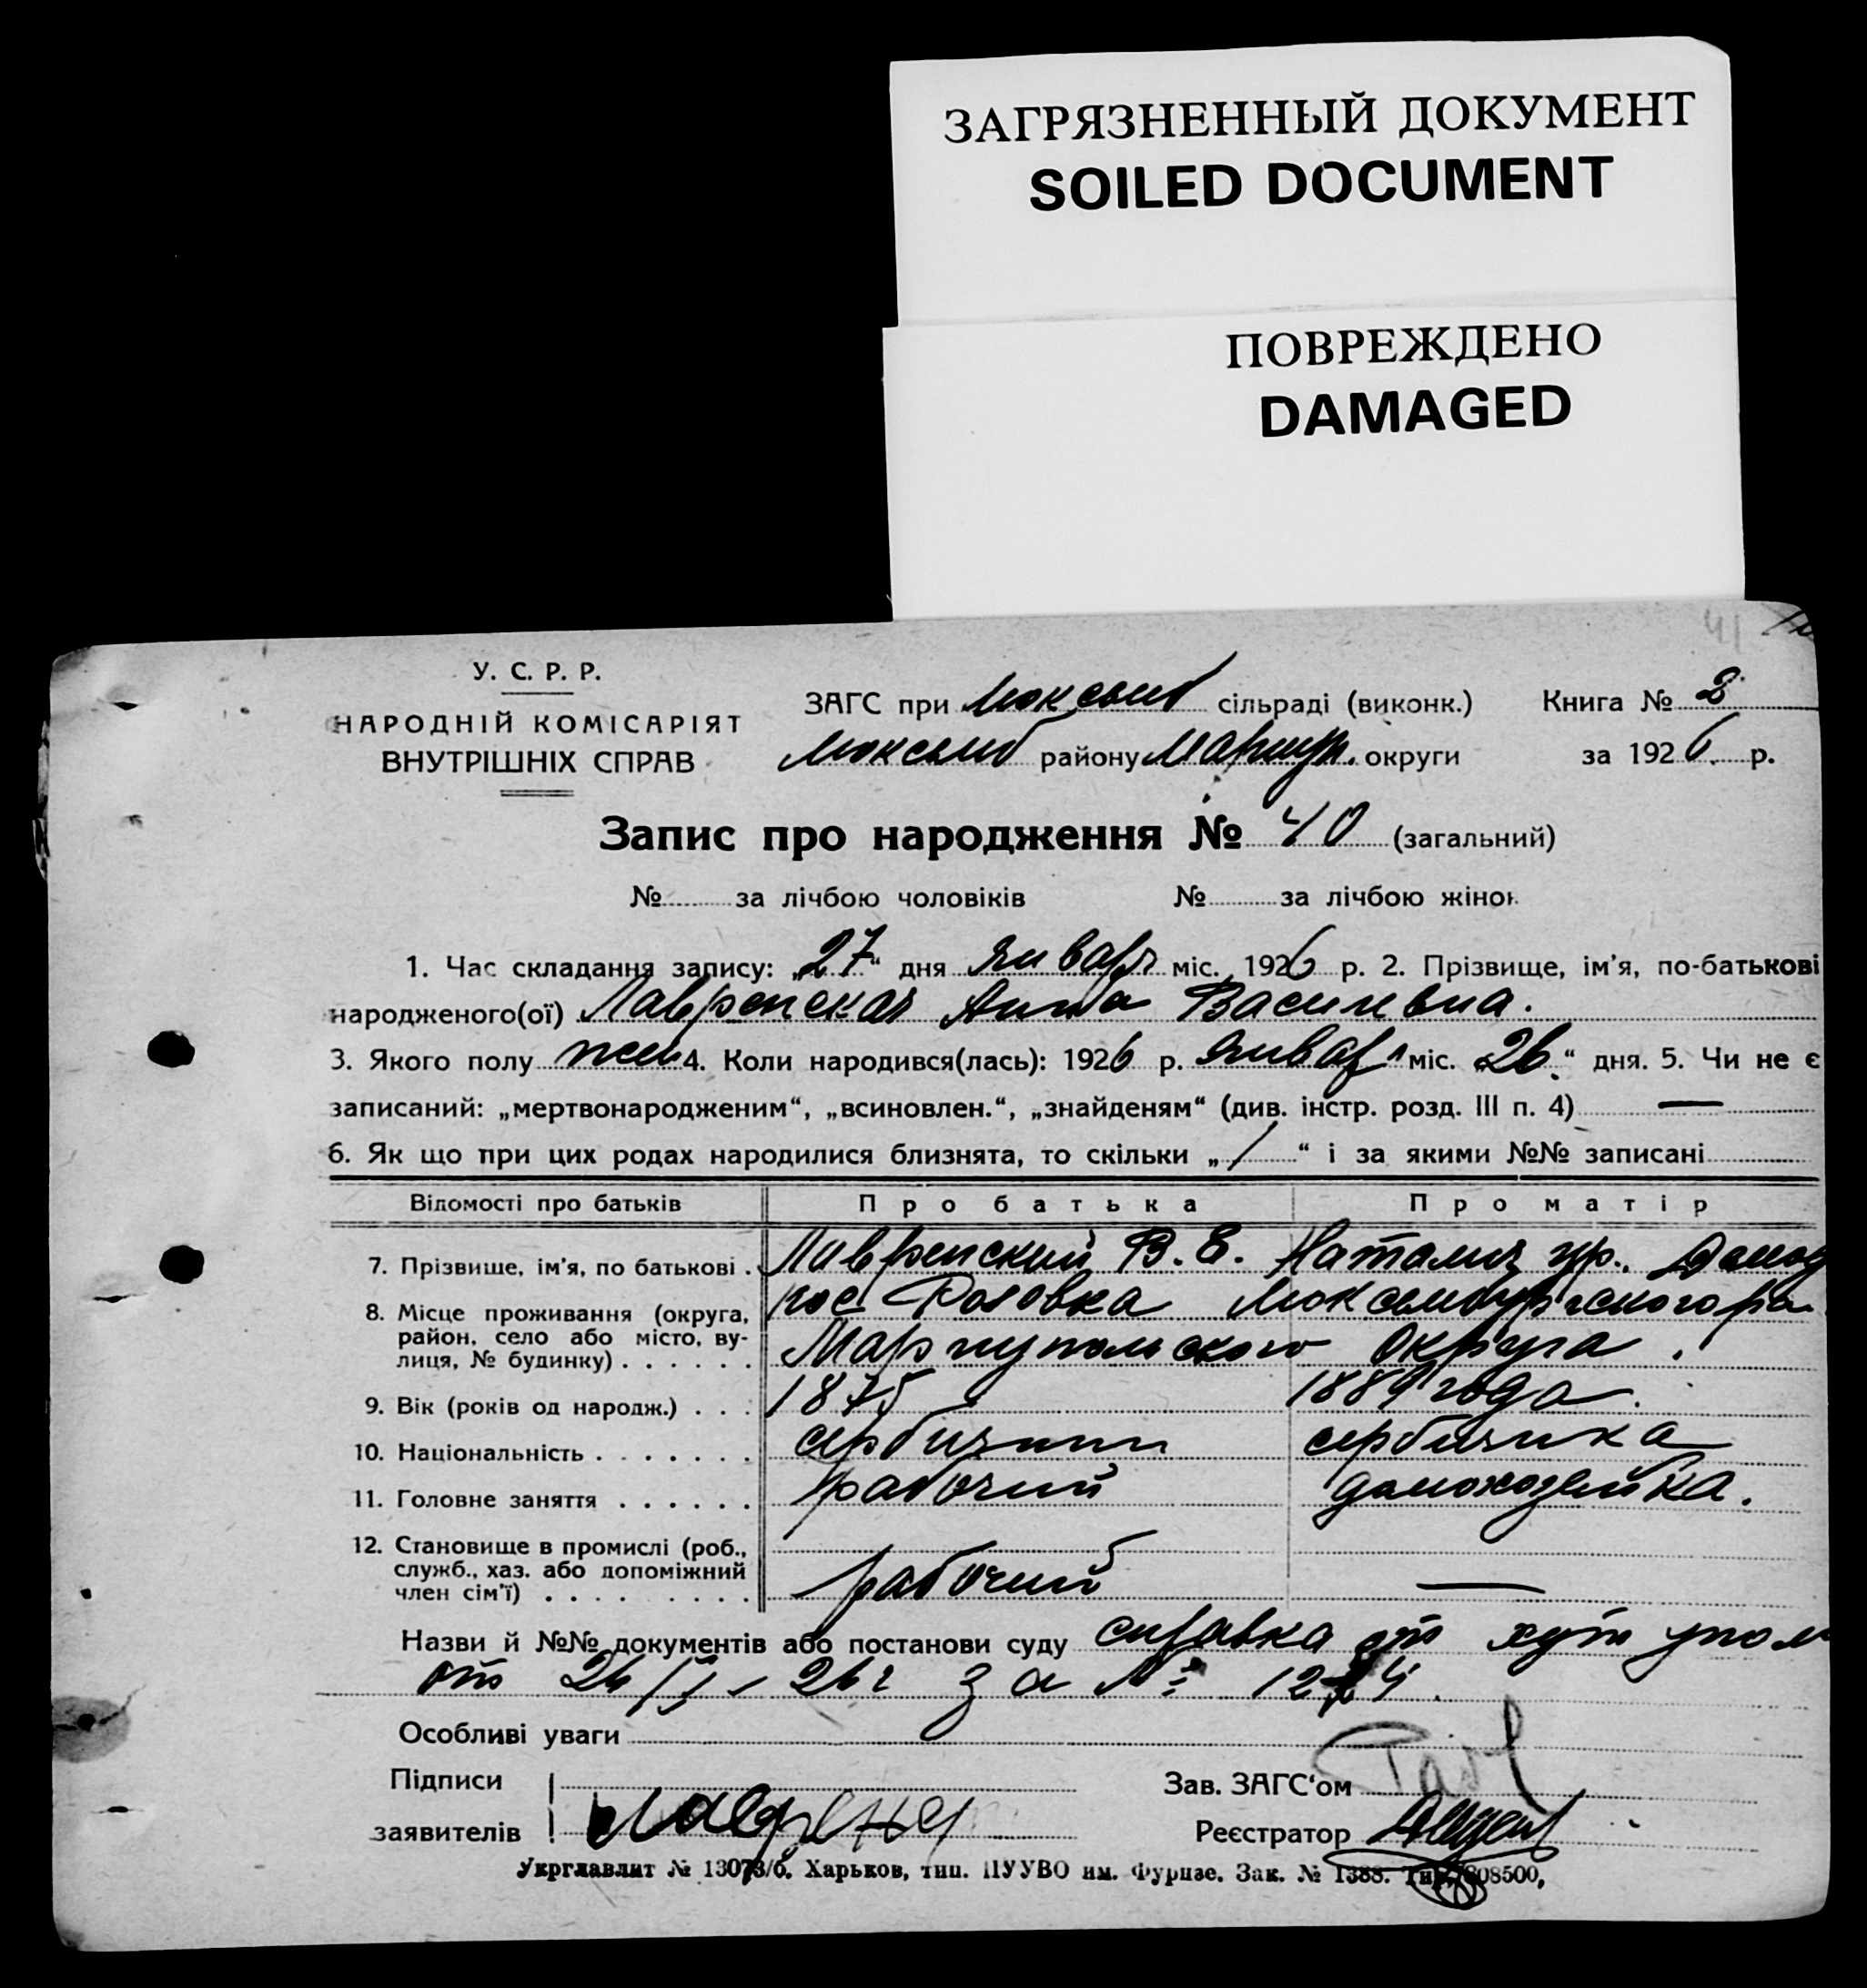 ЗАГРЯЗНЕННЫЙ ДОКУМЕНТ
SOILED DOCUMENT
ПОВРЕЖДЕНО
DAMAGED
41
У. С. Р. Р.
НАРОДНІЙ КОМІСАРІЯТ
ВНУТРІШНІХ СПРАВ
ЗАГС при Люксемб сільраді (виконк.) Книга № 2
Люксемб району Мариуп. округи за 1926 р.
Запис про народження № 40 (загальний)
№ за лічбою чоловіків № за лічбою жінок
1. Час складання запису: „27“ дня января міс. 1926 р. 2. Прізвище, ім'я, по-батькові
народженого(ої) Лавренская Анна Василевна.
3. Якого полу жен 4. Коли народився(лась): 1926 р. января міс. „26“ дня. 5. Чи не є
записаний: „мертвонародженим“, „всиновлен.“, „знайденям“ (див. інстр. розд. III п. 4) —
6. Як що при цих родах народилися близнята, то скільки „/“ і за якими №№ записані
Відомості про батьків Про батька Про матір
7. Прізвише, ім'я, по батькові . Лавренский В. Е. Наталия
8. Місце проживання (округа, пос Розовка Люксембургского
район, село або місто, ву-
лиця, № будинку) . . . . . . Мариупольского округа.
9. Вік (років од народж.) . . . 1875 1889 года.
10. Національність . . . . . . . сербиянин сербиянка
11. Головне заняття . . . . . . рабочий домохозяйка.
12. Становище в промислі (роб.,
служб., хаз. або допоміжний
член сім'ї) . . . . . . . . . рабочий —
Назви й №№ документів або постанови суду справка от хут упол
от 26/I - 26 г за №
Особливі уваги
Підписи Зав. ЗАГС'ом
заявителів Реєстратор
Укрглавлит № 13073/б. Харьков, тип. ПУУВО им. Фрунзе. Зак. № 1388. Тир. 808500,